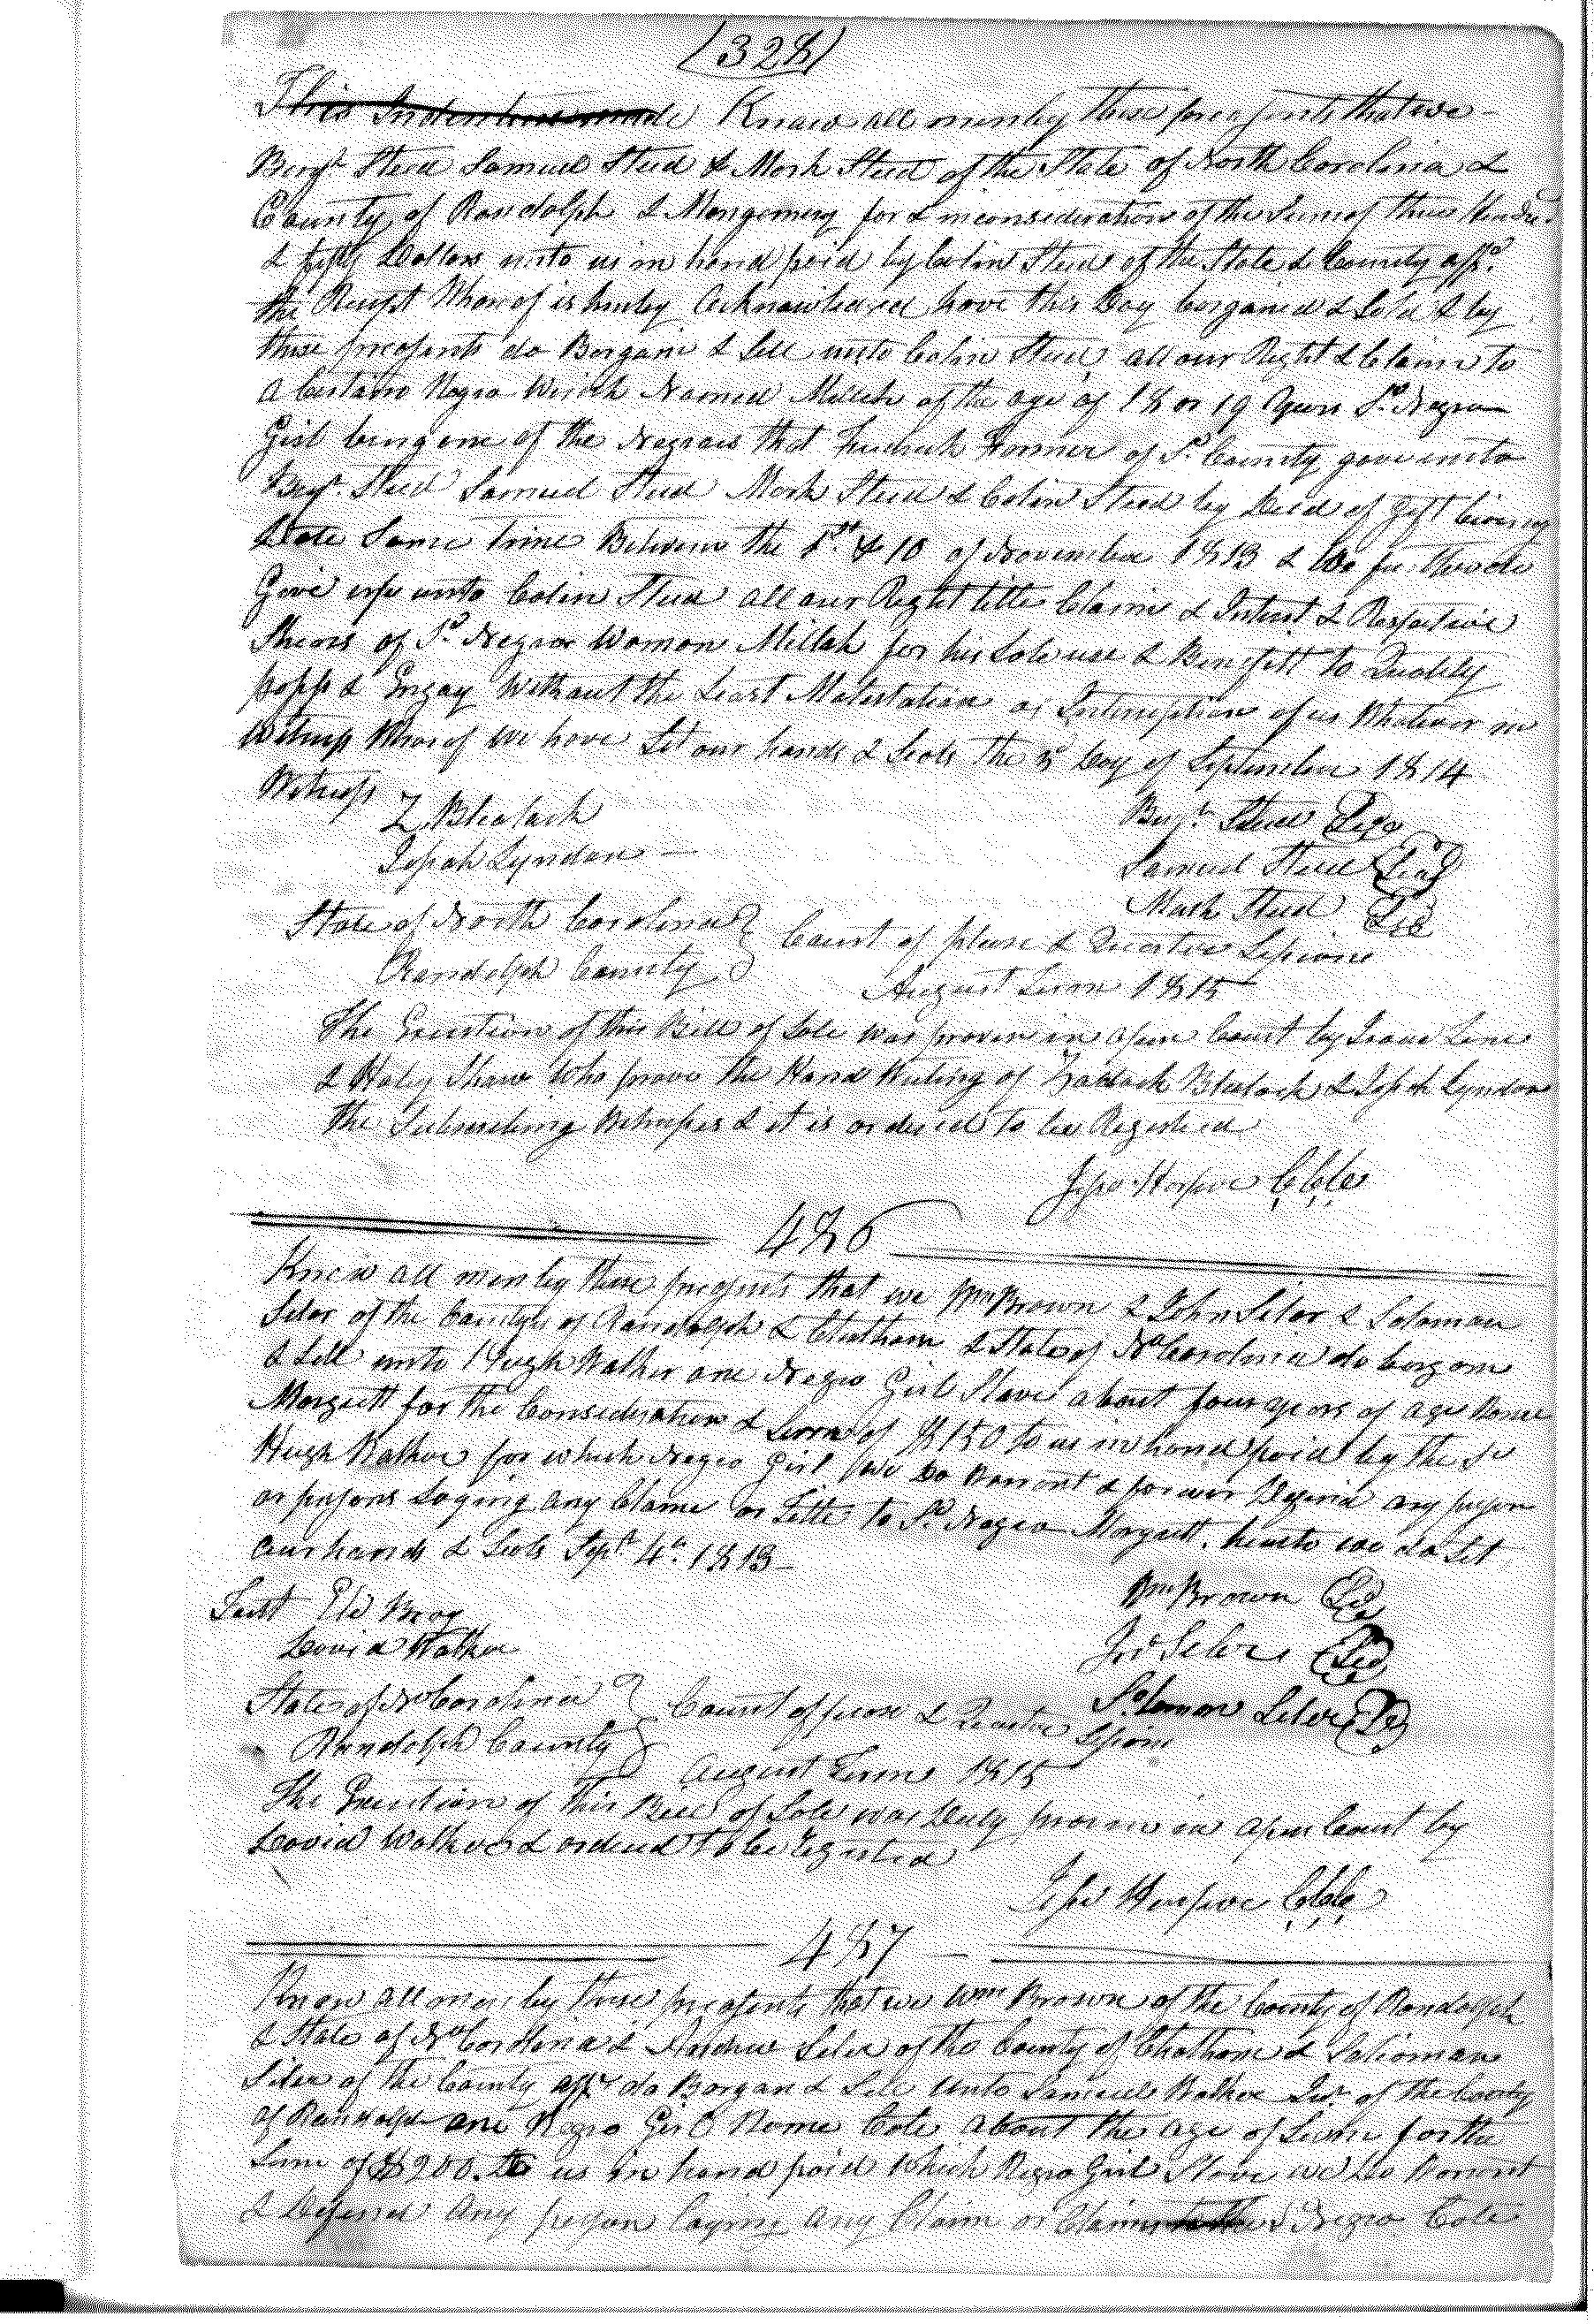 (328)
This Indenture made Know all men by these presents that we
Benjn Steed Samuel Steed & Mark Steed of the State of North Carolina &
County of Randolph & Montgomery for & in consideration of the Sum of three Hundrd
& fifty Dollars unto us in hand paid by Colin Steed of the State & County affsd
the Receipt Whareof is hereby Acknowledged have this Day bargained & Sold & by
these presents do Bargain & Sell unto Colin Steed all our Right & Claim to
a Certain Negro Named Millah of the age of 18 or 19 Years Sd Negro
Girl being one of the Negroes that Fredrick of Sd County gave unto
Benjn Steed Samuel Steed Mark Steed & Colin Steed by Deed of Gift
Date Some time Between the 1st & 10 of November 1813 & do
Give up unto Colin Steed all our Right title Claim & Intrest & Respective
Shears of Sd Negroe Woman Millah for his Sole use & Benefitt to
possess & Enjoy Without the Least Molestation or Interruption of us Whatever in
Witness Whareof we have Set our hands & Seals the 3d Day of September 1814
Witness
Z Blealack
Josiah Lyndon
Benjn Steed Seal
Samuel Steed Seal
Mark Steed Seal
State of North Carolina } Court of pleas & Quarter Sessions
Randolph County } August Term 1815
The Execution of this Bill of Sale was proven in open Court by Isaac Lane
& Haley Shaw Who prove the Hand Writing of Zaddock Blealock & Lyndon
the Subscribing Witnesses & it is ordered to be Registered
Jesse Harper C.C.C.
486
Know all men by these presents that we Wm Brown & John Siler & Soloman
Siler of the Countys of Randolph & Chatham & State of No Carolina do bargain
& Sell unto Hugh Walker one Negro Girl Slave about four years of age Name
Margrett for the Consideration & Sum of $150 to us in hand paid by the Sd
Hugh Walker for which Negro Girl We Do Warrant & forever Defend any person
or persons Laying any Clame or Title to Sd Negro Margrett. hearto we do Set
our hands & Seals Sept 4th 1813
Test Eli Bray
David Walker
Wm Brown Seal
Jno Siler Seal
Soloman Siler Seal
State of No Carolina } Court of pleas & Quarter Sessions
Randolph County } August Term 1815
The Execution of this Bill of Sale was Duly proven in open Court by
David Walker & ordered to be Registred
Jesse Harper C.C.C.
487
Know all men by these presents that we Wm Brown of the County of Randolph
& State of No Carolina & Andrew Siler of the County of Chatham & Solioman
Siler of the County affsd do Bargan & Sell unto Samuel Walker Jur. of the County
of Randolph one Negro Girl Name Cate about the age of for the
Sum of $200. to us in hand paid Which Negro Girl Slave we Do Warrant
& Defend any person Laying any Claim or Claims Negro Cate